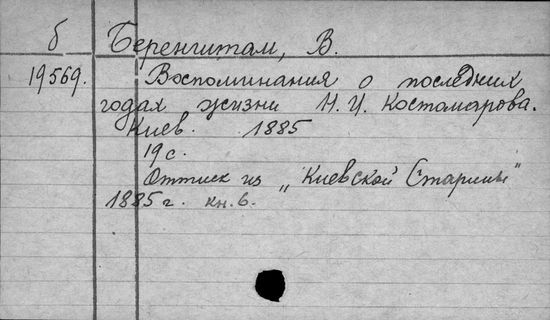 б Беренштам, В.
19569. Воспоминания о последних
годах жизни Н. И. Костомарова.
Киев. 1885
19 с.
Оттиск из „Киевской Старины"
1885 г. кн. 6.